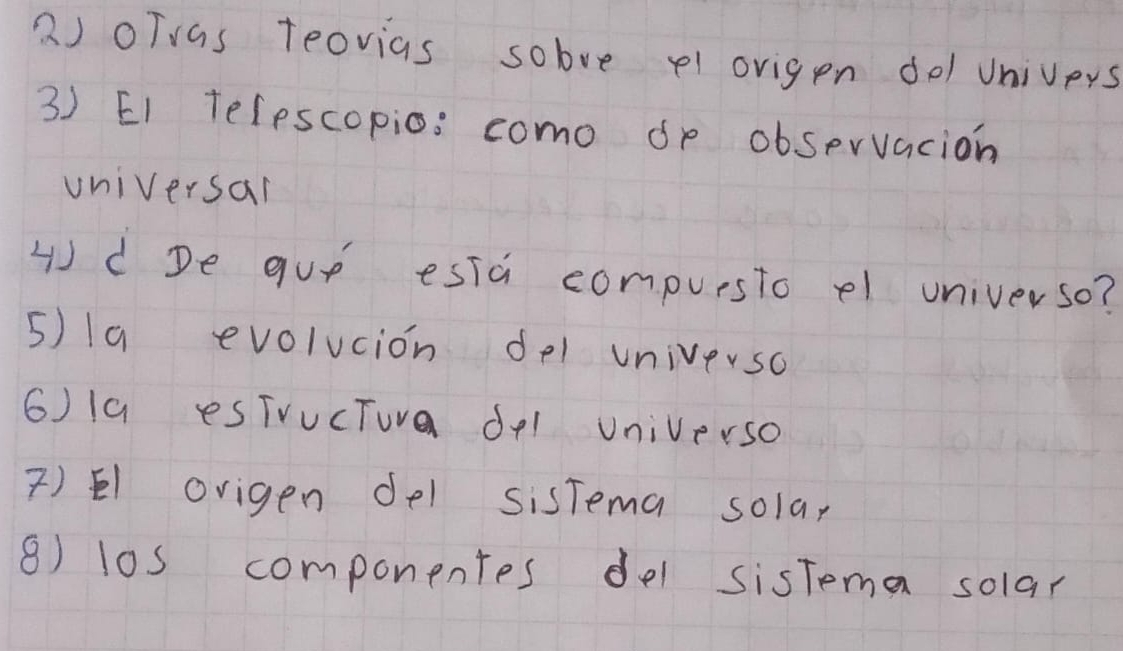 2) Otras teorias sobre el origen del Univers
3) El Telescopio: como de observación
universal
4) ¿ De qué está compuesto el universo?
5) la evolución del universo
6) la estructura del universo
7) El origen del sistema solar
8) los componentes del sistema solar